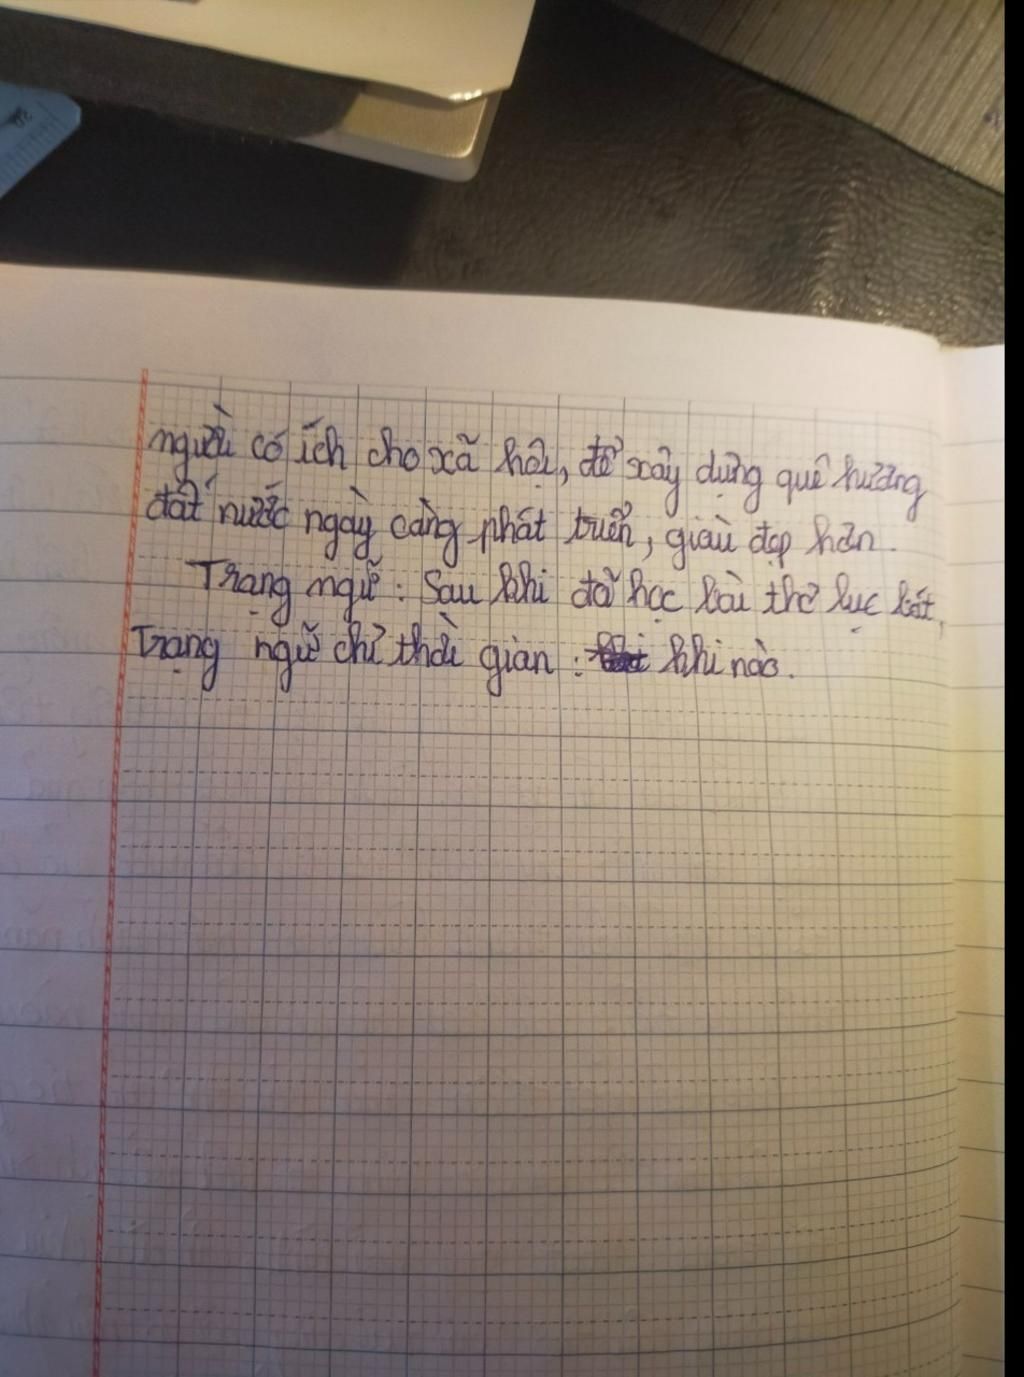 người có ích cho xã hội, để xây dựng quê hương
đất nước ngày càng phát triển, giàu đẹp hơn.
Trạng ngữ: Sau khi đã học bài thơ lục bát,
Trạng ngữ chỉ thời gian: khi nào.